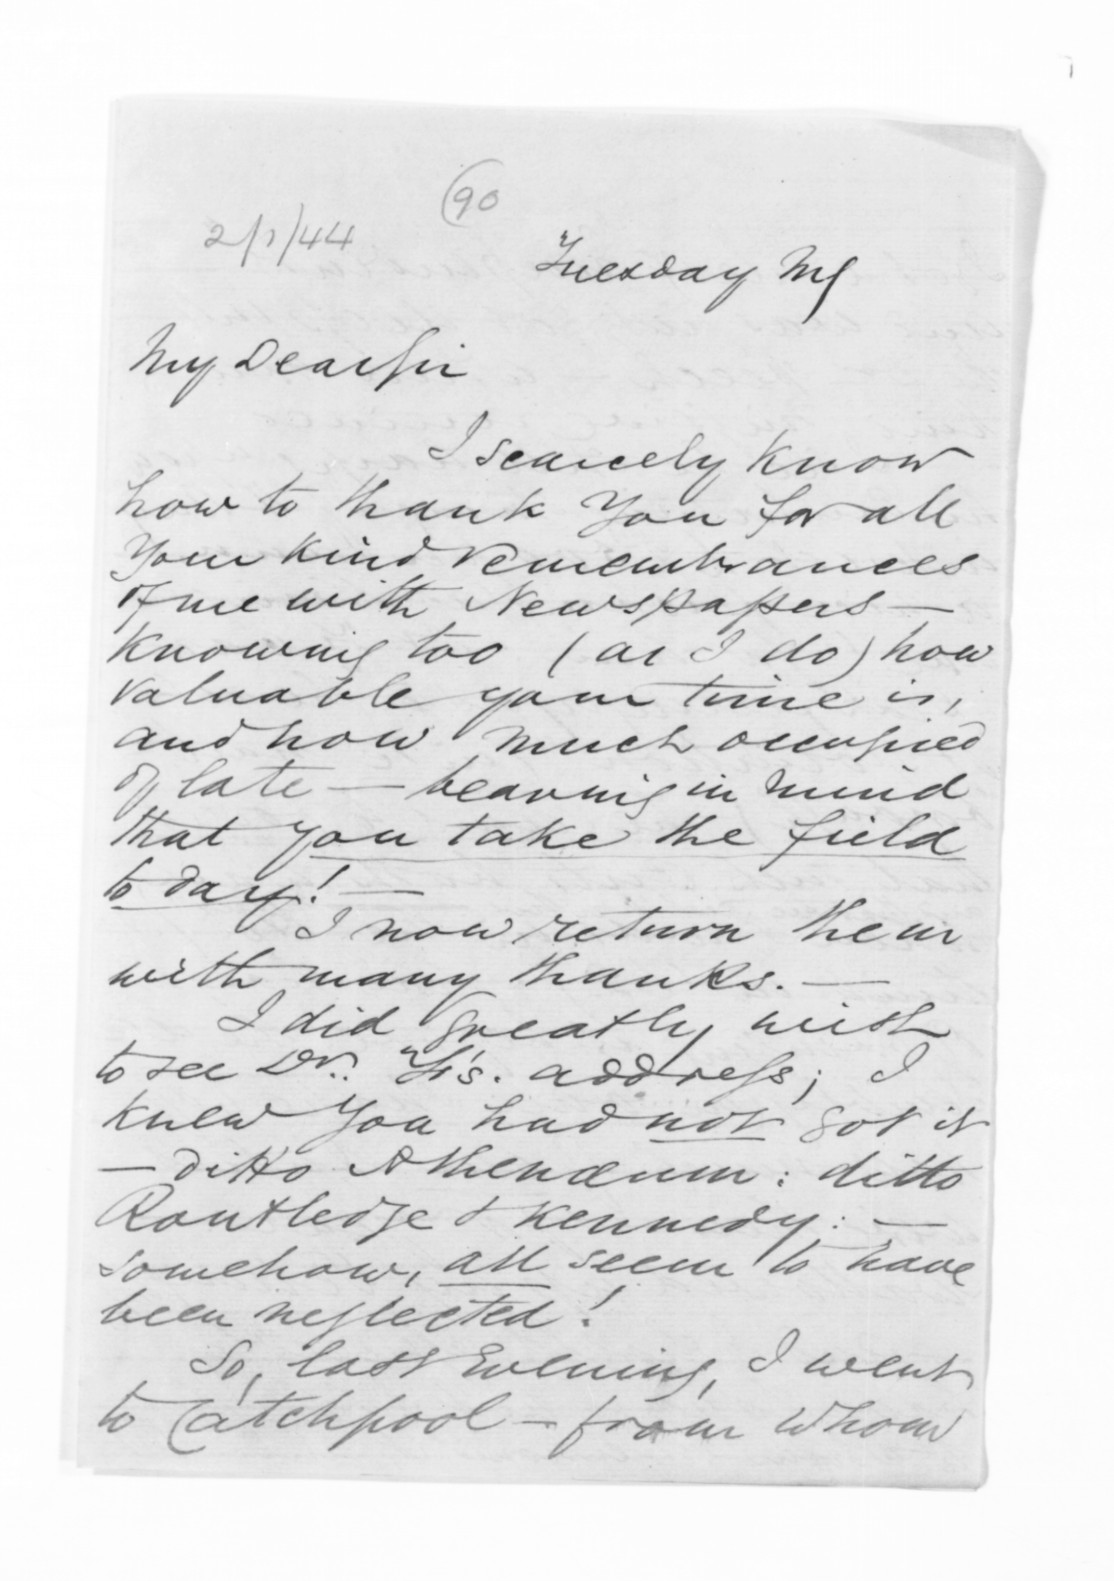 90
2/1/44
Tuesday Mg
My Dear Sir
I scarcely know
how to thank You for all
Your kind remembrances
of me with Newspapers —
knowing too (as I do) how
valuable your time is,
and how much occupied
of late — bearing in mind
that you take the field
to day! —
I now return them
with many thanks. —
I did greatly wish
to see Dr. address; I
knew You had not got it
— ditto Athenæum : ditto
Routledge & Kennedy : —
somehow, all seem to have
been neglected!
So, last Evening, I went
to Catchpool — from whom